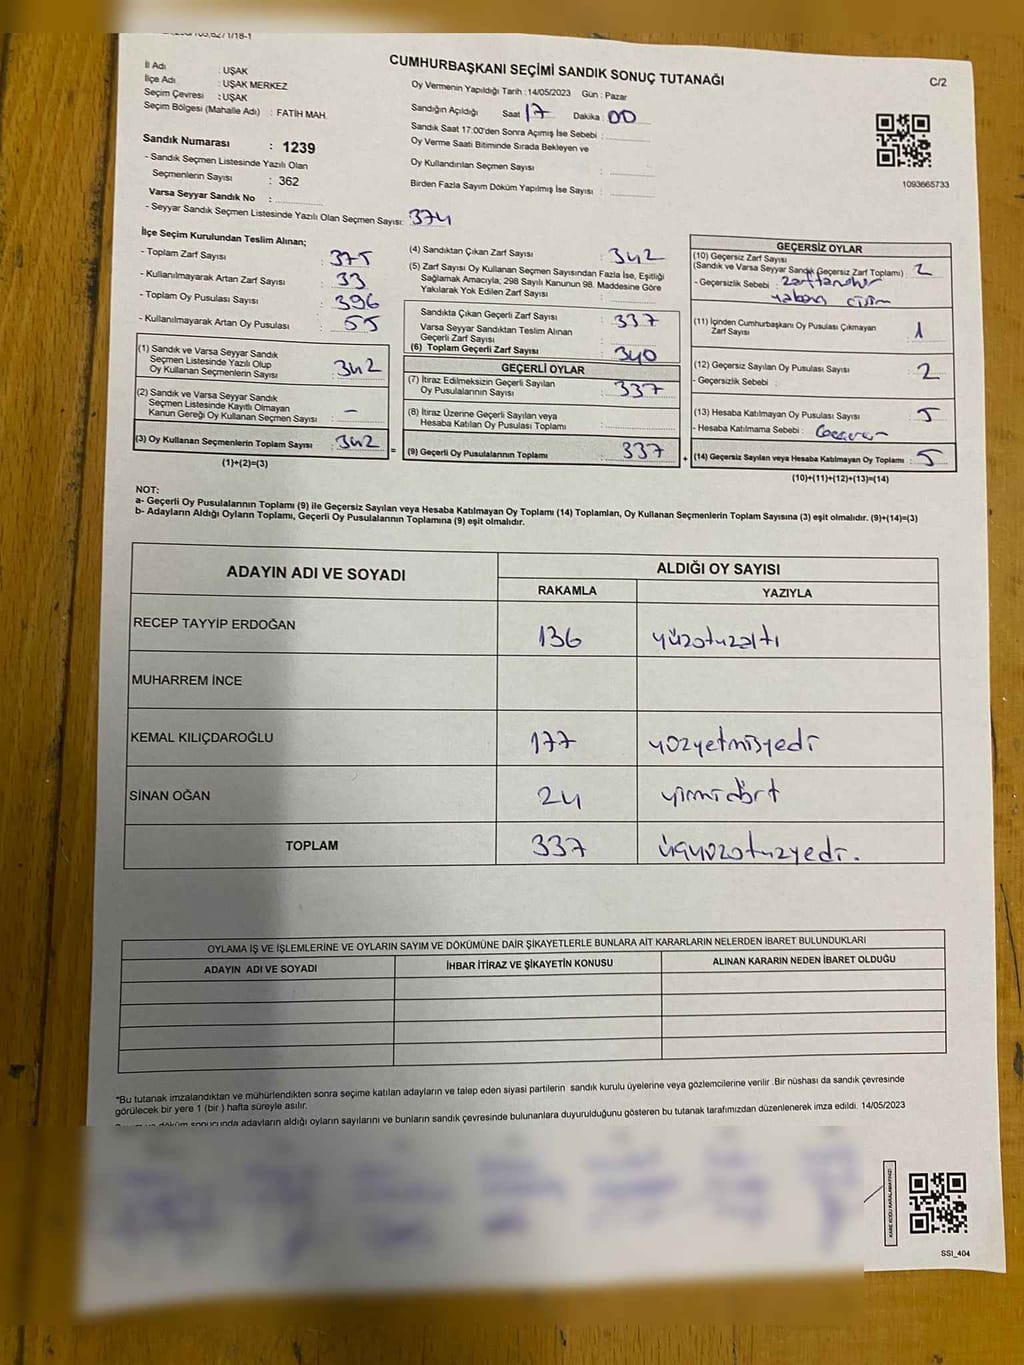 CUMHURBAŞKANI SEÇİMİ SANDIK SONUÇ TUTANAĞI
C/2
İl Adı : UŞAK
İlçe Adı : UŞAK MERKEZ
Seçim Çevresi : UŞAK
Seçim Bölgesi (Mahalle Adı) : FATİH MAH.
Oy Vermenin Yapıldığı Tarih :14/05/2023 Gün : Pazar
Sandığın Açıldığı Saat 17 Dakika : 00
Sandık Saat 17:00'den Sonra Açımış İse Sebebi :
Oy Verme Saati Bitiminde Sırada Bekleyen ve
Oy Kullandırılan Seçmen Sayısı :
Birden Fazla Sayım Döküm Yapılmış İse Sayısı :
1093665733
Sandık Numarası : 1239
- Sandık Seçmen Listesinde Yazılı Olan
Seçmenlerin Sayısı : 362
Varsa Seyyar Sandık No :
- Seyyar Sandık Seçmen Listesinde Yazılı Olan Seçmen Sayısı: 374
İlçe Seçim Kurulundan Teslim Alınan;
- Toplam Zarf Sayısı : 375
- Kullanılmayarak Artan Zarf Sayısı : 33
- Toplam Oy Pusulası Sayısı : 396
- Kullanılmayarak Artan Oy Pusulası : 55
(1) Sandık ve Varsa Seyyar Sandık
Seçmen Listesinde Yazılı Olup
Oy Kullanan Seçmenlerin Sayısı : 342
(2) Sandık ve Varsa Seyyar Sandık
Seçmen Listesinde Kayıtlı Olmayan
Kanun Gereği Oy Kullanan Seçmen Sayısı : -
(3) Oy Kullanan Seçmenlerin Toplam Sayısı : 342
(1)+(2)=(3)
(4) Sandıktan Çıkan Zarf Sayısı : 342
(5) Zarf Sayısı Oy Kullanan Seçmen Sayısından Fazla İse, Eşitliği
Sağlamak Amacıyla; 298 Sayılı Kanunun 98. Maddesine Göre
Yakılarak Yok Edilen Zarf Sayısı :
Sandıkta Çıkan Geçerli Zarf Sayısı : 337
Varsa Seyyar Sandıktan Teslim Alınan
Geçerli Zarf Sayısı :
(6) Toplam Geçerli Zarf Sayısı : 340
GEÇERLİ OYLAR
(7) İtiraz Edilmeksizin Geçerli Sayılan
Oy Pusulalarının Sayısı : 337
(8) İtiraz Üzerine Geçerli Sayılan veya
Hesaba Katılan Oy Pusulası Toplamı :
= (9) Geçerli Oy Pusulalarının Toplamı : 337 +
GEÇERSİZ OYLAR
(10) Geçersiz Zarf Sayısı
(Sandık ve Varsa Seyyar Sandık Geçersiz Zarf Toplamı) : 2
- Geçersizlik Sebebi :
yabancı cisim
(11) İçinden Cumhurbaşkanı Oy Pusulası Çıkmayan
Zarf Sayısı : 1
(12) Geçersiz Sayılan Oy Pusulası Sayısı : 2
- Geçersizlik Sebebi :
(13) Hesaba Katılmayan Oy Pusulası Sayısı : 5
- Hesaba Katılmama Sebebi :
(14) Geçersiz Sayılan veya Hesaba Katılmayan Oy Toplamı : 5
(10)+(11)+(12)+(13)=(14)
NOT:
a- Geçerli Oy Pusulalarının Toplamı (9) ile Geçersiz Sayılan veya Hesaba Katılmayan Oy Toplamı (14) Toplamları, Oy Kullanan Seçmenlerin Toplam Sayısına (3) eşit olmalıdır. (9)+(14)=(3)
b- Adayların Aldığı Oyların Toplamı, Geçerli Oy Pusulalarının Toplamına (9) eşit olmalıdır.
ADAYIN ADI VE SOYADI
ALDIĞI OY SAYISI
RAKAMLA YAZIYLA
RECEP TAYYİP ERDOĞAN 136 yüzotuzaltı
MUHARREM İNCE
KEMAL KILIÇDAROĞLU 177 yüzyetmişyedi
SİNAN OĞAN 24 yirmidört
TOPLAM 337 üçyüzotuzyedi.
OYLAMA İŞ VE İŞLEMLERİNE VE OYLARIN SAYIM VE DÖKÜMÜNE DAİR ŞİKAYETLERLE BUNLARA AİT KARARLARIN NELERDEN İBARET BULUNDUKLARI
ADAYIN ADI VE SOYADI İHBAR İTİRAZ VE ŞİKAYETİN KONUSU ALINAN KARARIN NEDEN İBARET OLDUĞU
*Bu tutanak imzalandıktan ve mühürlendikten sonra seçime katılan adayların ve talep eden siyasi partilerin sandık kurulu üyelerine veya gözlemcilerine verilir .Bir nüshası da sandık çevresinde
görülecek bir yere 1 (bir ) hafta süreyle asılır.
döküm sonucunda adayların aldığı oyların sayılarını ve bunların sandık çevresinde bulunanlara duyurulduğunu gösteren bu tutanak tarafımızdan düzenlenerek imza edildi. 14/05/2023
KARE KODU KARALAMAYINIZ!
SSI_404